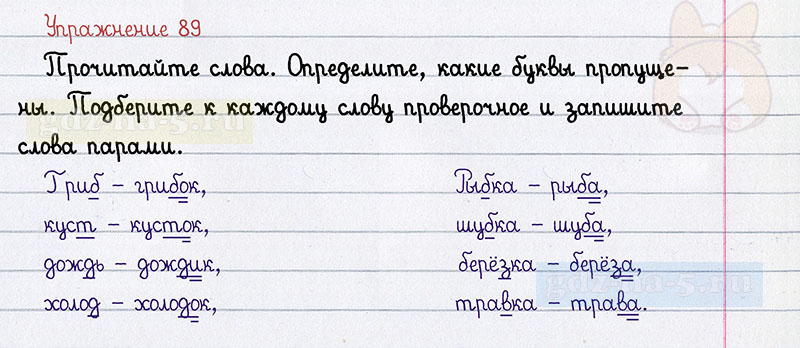 Упражнение 89
Прочитайте слова. Определите, какие буквы пропуще-
ны. Подберите к каждому слову проверочное и запишите
слова парами.
Гриб – грибок,
куст – кусток,
дождь – дождик,
холод – холодок,
Рыбка – рыба,
шубка – шуба,
берёзка – берёза,
травка – трава.
gdz-na-5.ru
gdz-na-5.ru